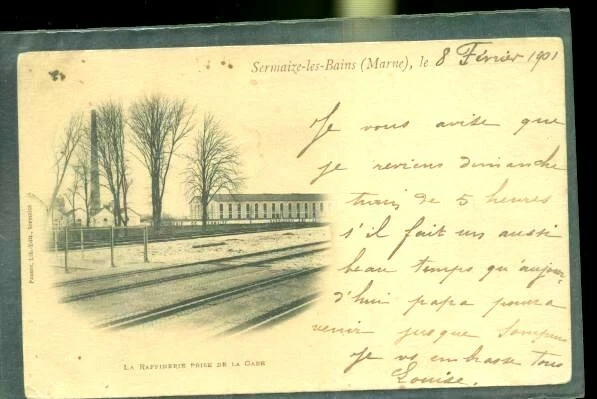 Sermaize-les-Bains (Marne), le 8 Février 1901
Je vous avise que
je reviens dimanche
train de 5 heures
s'il fait un aussi
beau temps qu'aujour-
d'hui papa pourra
venir jusque
Je vs embrasse tous
Louise.
LA RAFFINERIE PRISE DE LA GARE